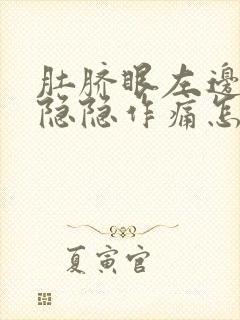 肚脐眼左邊
隐隐作痛怎
夏寅官